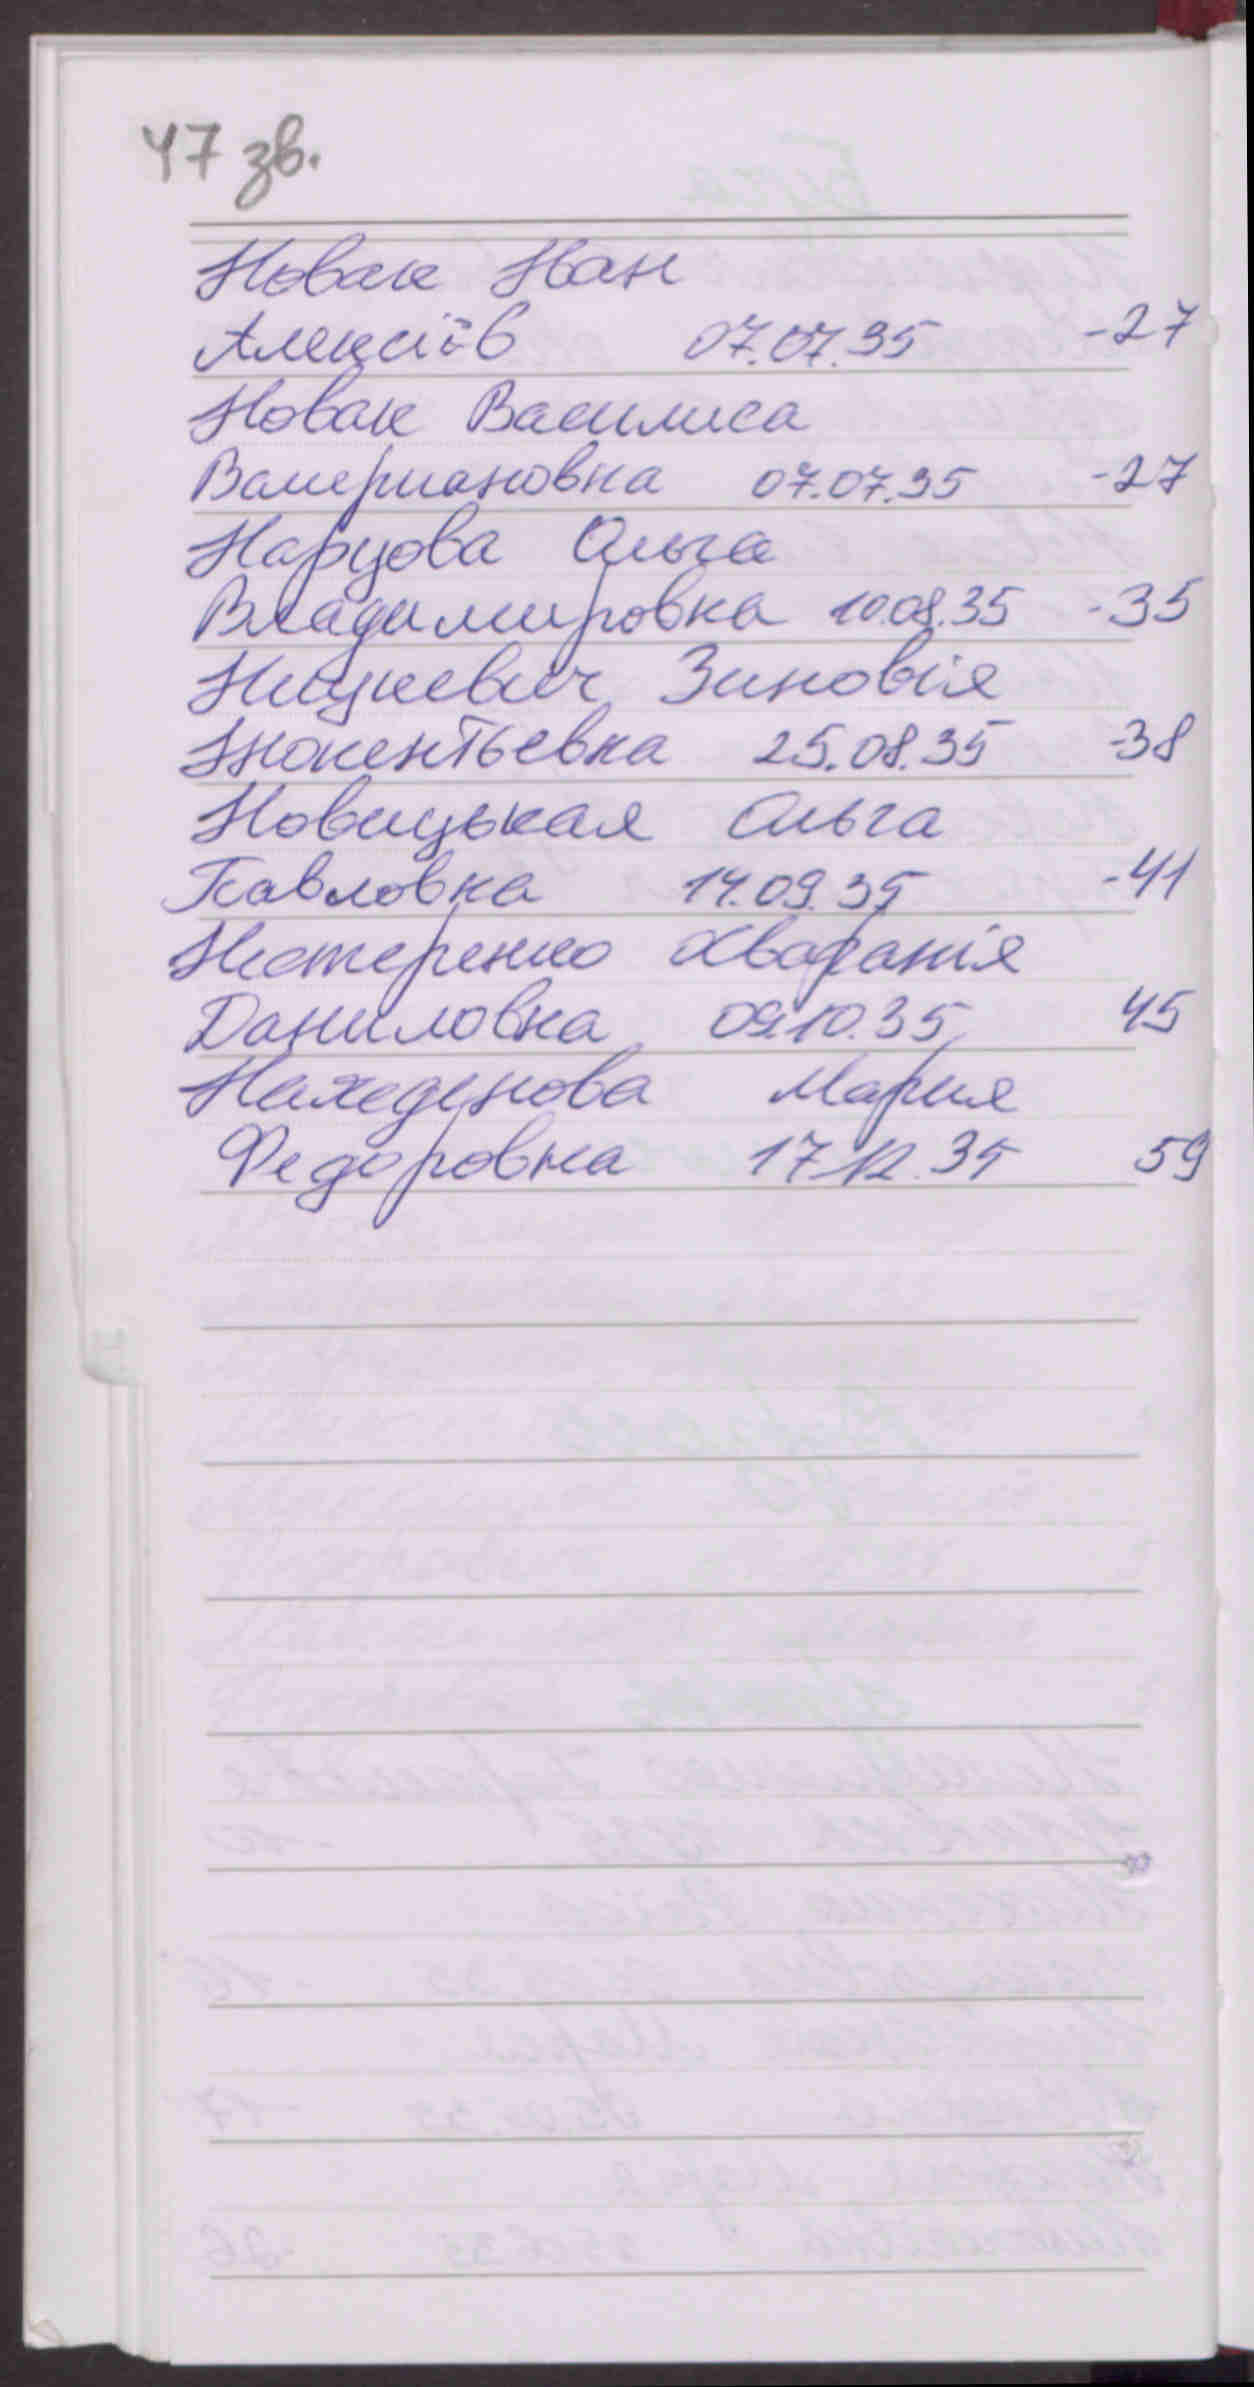 47 зв.
Новак Иван
Алексіїв 07.07.35 -27
Новак Василиса
Валериановна 07.07.35 -27
Нарцова Ольга
Владимировна 10.08.35 -35
Ницкевич Зиновія
Інокентьевна 25.08.35 -38
Новицькая Ольга
Павловна 14.09.35 -41
Нестеренко
Даниловна 09.10.35 45
Мария
Федоровна 17.12.35 59